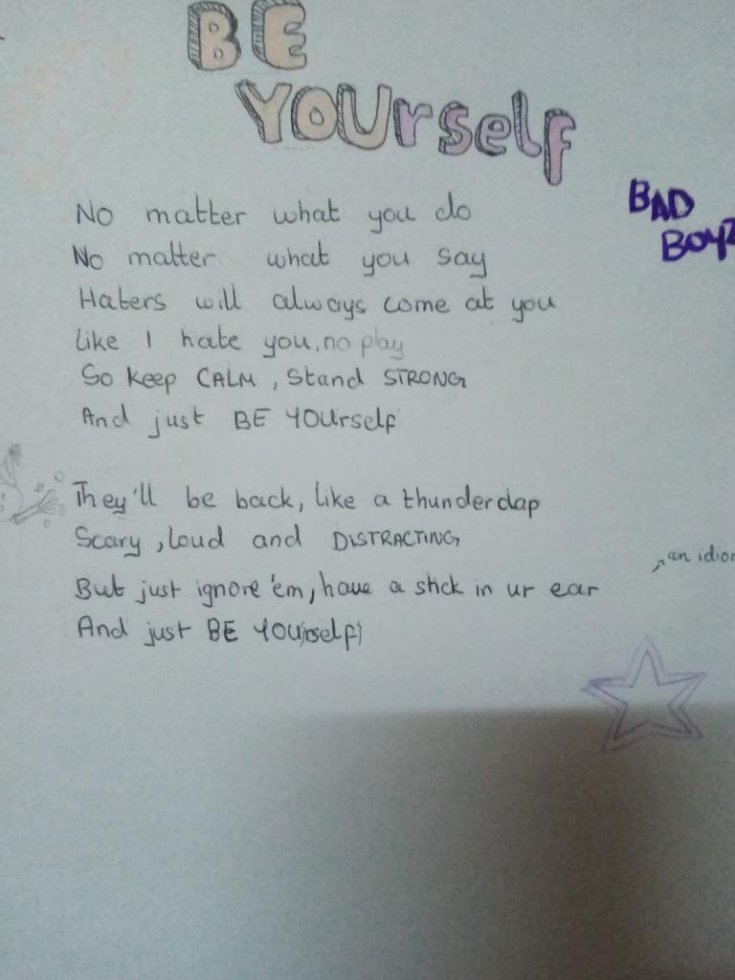 BE
YOUrself
BAD
BOYZ
No matter what you do
No matter what you say
Haters will always come at you
Like I hate you, no play
So keep CALM, stand STRONG
And just BE YOUrself
They'll be back, like a thunderclap
Scary, loud and DISTRACTING
an idiom
But just ignore 'em, have a stick in ur ear
And just BE YOUrself